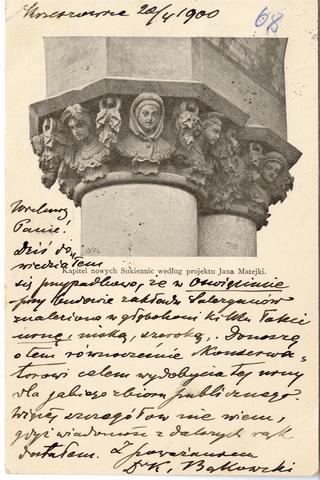 Krzeszowice 20/4 1900
68
Wielmożny
Panie!
Dziś do-
wiedziałem
Kapitel nowych Sukiennic według projektu Jana Matejki.
się przypadkowo, że w Oświęcimie
przy budowie zakładu Salezyanów
znaleziono w głębokości kilku
urnę, niską, szeroką, . Donoszę
o tem równocześnie Konserwa-
torowi celem wydobycia tej urny
dla jakiego zbioru publicznego.
Więcej szczegółów nie wiem,
gdyż wiadomość z dalszych rąk
dostałem. Z poważaniem
Dr K. Bąkowski